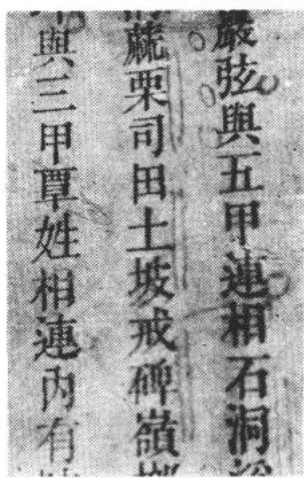 嚴弦與五甲連相石洞
蔍栗司田土坡戒碑嶺
與三甲覃姓相連內有